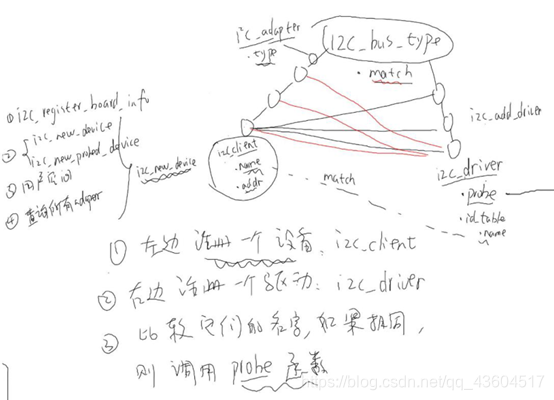 i2c_adapter
.type
i2c_bus_type
.match
① i2c_register_board_info
② i2c_new_device
i2c_new_probed_device
③ 用户空间
④ 查询所有adapter
i2c_new_device
i2c_client
.name
.addr
i2c_add_driver
i2c_driver
.probe
.id_table
.name
match
① 左边注册一个设备: i2c_client
② 右边注册一个驱动: i2c_driver
③ 比较它们的名字,如果相同,
则调用 probe 函数
https://blog.csdn.net/qq_43604517